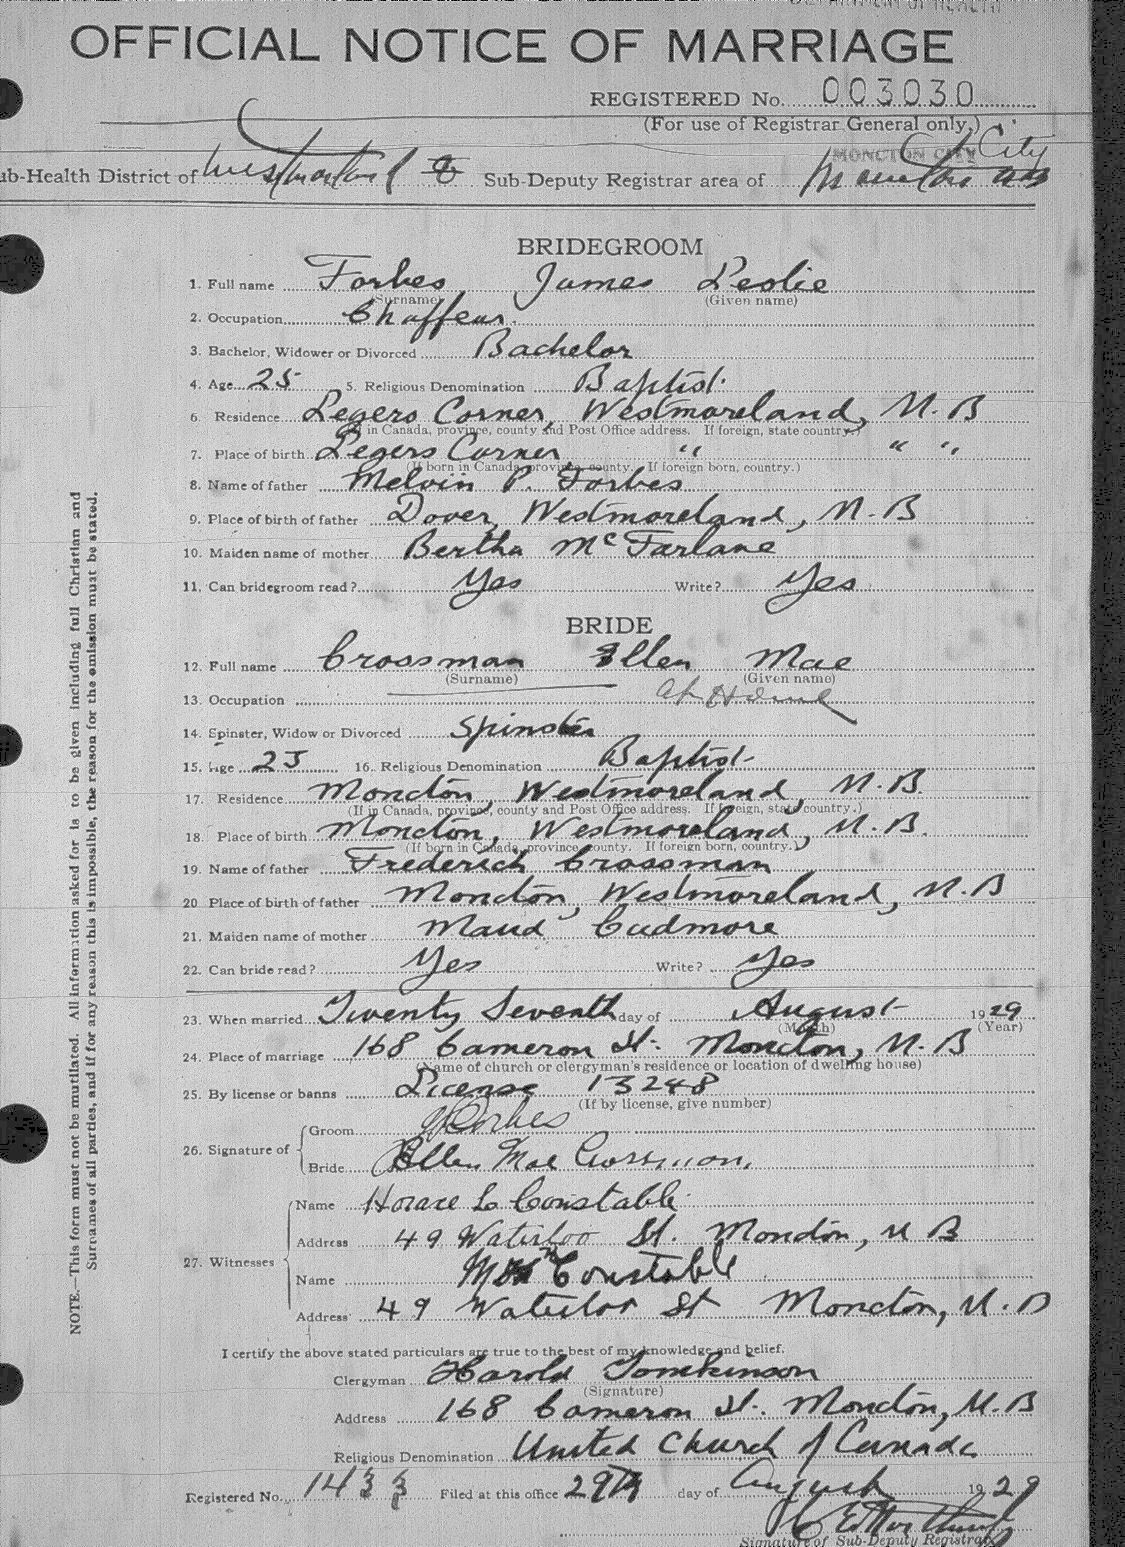 DEPARTMENT OF HEALTH
OFFICIAL NOTICE OF MARRIAGE
REGISTERED No. 003030
(For use of Registrar General only.)
MONCTON CITY City
ub-Health District of Westmorland Sub-Deputy Registrar area of
BRIDEGROOM
1. Full name Forbes James Leslie
(Surname) (Given name)
2. Occupation Chaffeur.
3. Bachelor, Widower or Divorced Bachelor
4. Age 25 5. Religious Denomination Baptist.
6. Residence Legers Corner, Westmoreland, N. B
(If in Canada, province, county and Post Office address. If foreign, state country.)
7. Place of birth Legers Corner " " "
(If born in Canada, province, county. If foreign born, country.)
8. Name of father Melvin P. Forbes
9. Place of birth of father Dover, Westmoreland, N. B
10. Maiden name of mother Bertha McFarlane
11. Can bridegroom read? Yes Write? Yes
BRIDE
12. Full name Crossman Ellen Mae
(Surname) (Given name)
13. Occupation at Home
14. Spinster, Widow or Divorced Spinster
15. Age 23 16. Religious Denomination Baptist
17. Residence Moncton, Westmoreland, N. B.
(If in Canada, province, county and Post Office address. If foreign, state country.)
18. Place of birth Moncton, Westmoreland, N. B.
(If born in Canada, province, county. If foreign born, country.)
19. Name of father Frederick Crossman
20 Place of birth of father Moncton, Westmoreland, N. B
21. Maiden name of mother Maud Cudmore
22. Can bride read? Yes Write? Yes
23. When married Twenty Seventh day of August 1929
(Month) (Year)
24. Place of marriage 168 Cameron St. Moncton, N. B
(Name of church or clergyman's residence or location of dwelling house)
25. By license or banns License 13248
(If by license, give number)
26. Signature of
Groom Forbes
Bride Ellen Mae Crossman.
27. Witnesses
Name Horace L Constable
Address 49 Waterloo St. Moncton, N B
Name Mrs Constable
Address 49 Waterloo St Moncton, N. B
I certify the above stated particulars are true to the best of my knowledge and belief.
Clergyman Harold Tomkinson
(Signature)
Address 168 Cameron St. Moncton, N. B
Religious Denomination United Church of Canada
Registered No. 1433 Filed at this office 29th day of August 1929
Signature of Sub-Deputy Registrar
NOTE.—This form must not be mutilated. All information asked for is to be given including full Christian and
Surnames of all parties, and if for any reason this is impossible, the reason for the omission must be stated.